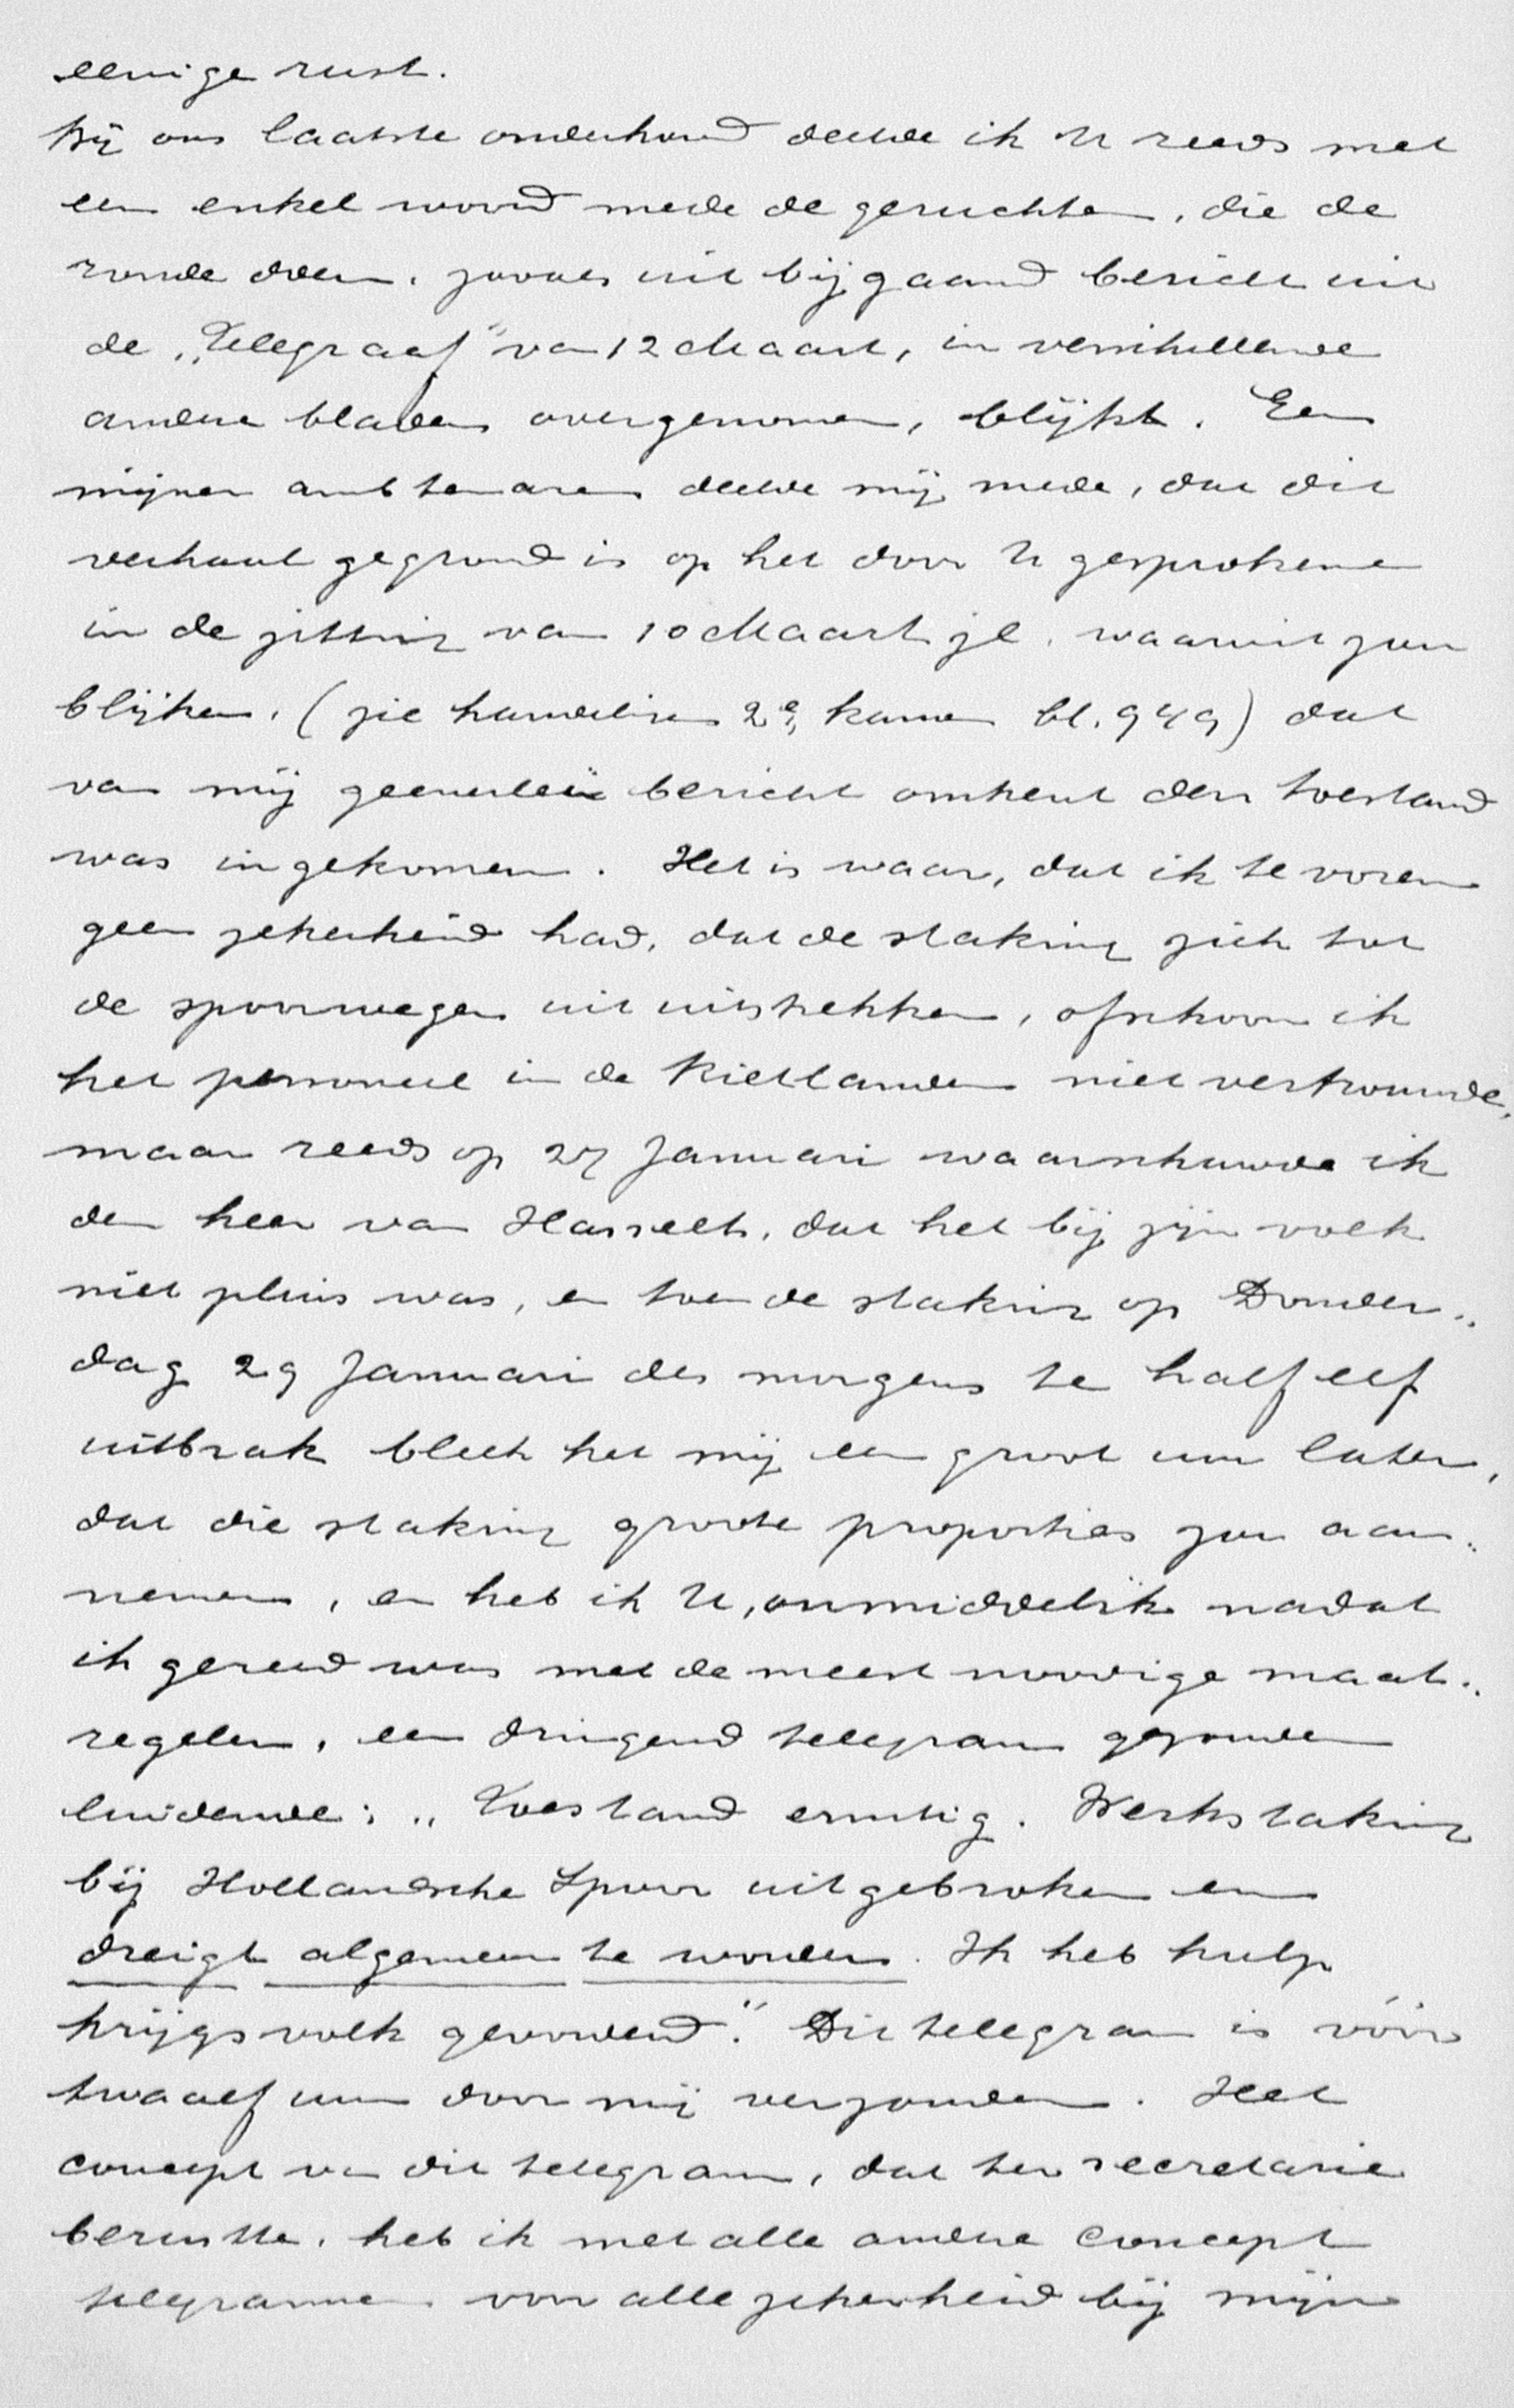 eenige rust.
Bij ons laatste onderhoud deelde ik U reeds met
een enkel woord mede de geruchten, die de
ronde doen, zooals uit bijgaand bericht uit
de „Telegraaf” van 12 Maart, in verschillende
andere bladen overgenomen, blijkt. Een
mijner ambtenaren deelde mij mede, dat dit
verhaal gegrond is op het door U gesprokene
in de zitting van 10 Maart jl. waaruit zou
blijken, (zie handelingen 2e kamer bl. 949) dat
van mij geenerlei bericht omtrent den toestand
was ingekomen. Het is waar, dat ik te voren
geen zekerheid had, dat de staking zich tot
de spoorwegen uit uitstrekken, ofschoon ik
het personeel in de Rietlanden niet vertrouwde,
maar reeds op 27 Januari waarschuwde ik
den heer van Hasselt, dat het bij zijn volk
niet pluis was, en toen de staking op Donder-
dag 29 Januari des morgens te half elf
uitbrak bleek het mij een groot uur later,
dat die staking groote proporties zou aan-
nemen, en heb ik U, onmiddelijk nadat
ik gereed was met de meest noodige maat-
regelen, een dringend telegram gezonden
luidende: „Toestand ernstig. Werkstaking
bij Hollandsche Spoor uitgebroken en
dreigt algemeen te worden. Ik heb hulp
krijgsvolk gevorderd.” Dit telegram is vóór
twaalf uur door mij verzonden. Het
concept van dit telegram, dat ter secretarie
berustte, heb ik met alle andere concept
telegrammen voor alle zekerheid bij mijne